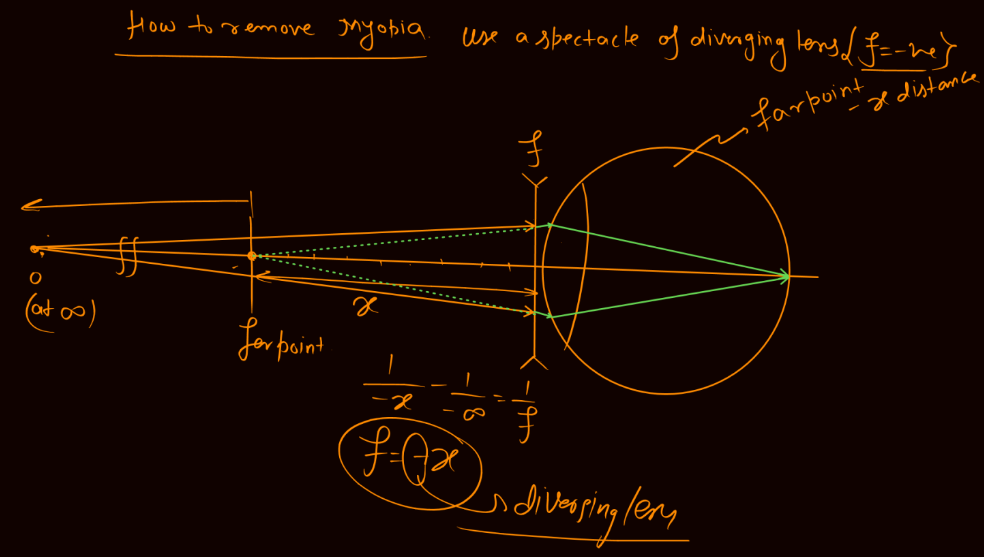 How to remove Myopia. Use a spectacle of diverging lens {f=-ve}
farpoint - x distance
f
O
(at ∞)
x
farpoint
1/-x - 1/-∞ = 1/f
f=-x
diverging lens